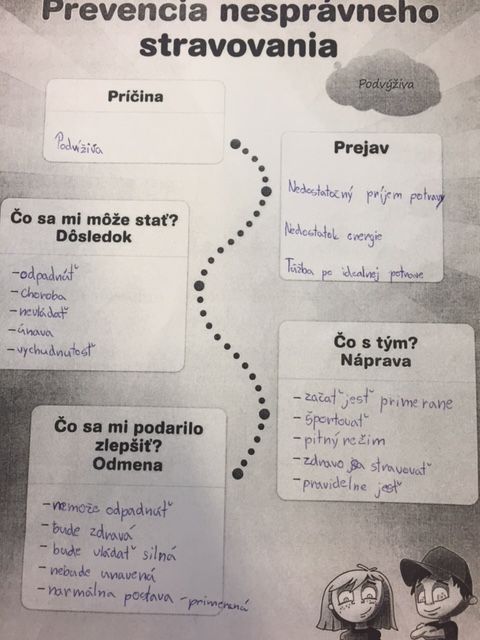 Prevencia nesprávneho
stravovania
Podvýživa
Príčina
Podvíživa
Prejav
Nedostatočný príjem potravy
Nedostatok energie
Túžba po idealnej potrave
Čo sa mi môže stať?
Dôsledok
-odpadnúť
-choroba
-nevládať
-únava
-vychudnutosť
Čo s tým?
Náprava
-začať jesť primerane
-športovať
-pitný režim
-zdravo sa stravovať
-pravidelne jesť
Čo sa mi podarilo
zlepšiť?
Odmena
-nemože odpadnúť
-bude zdravá
-bude vládať silná
-nebude unavená
-narmálna postava -primeraná